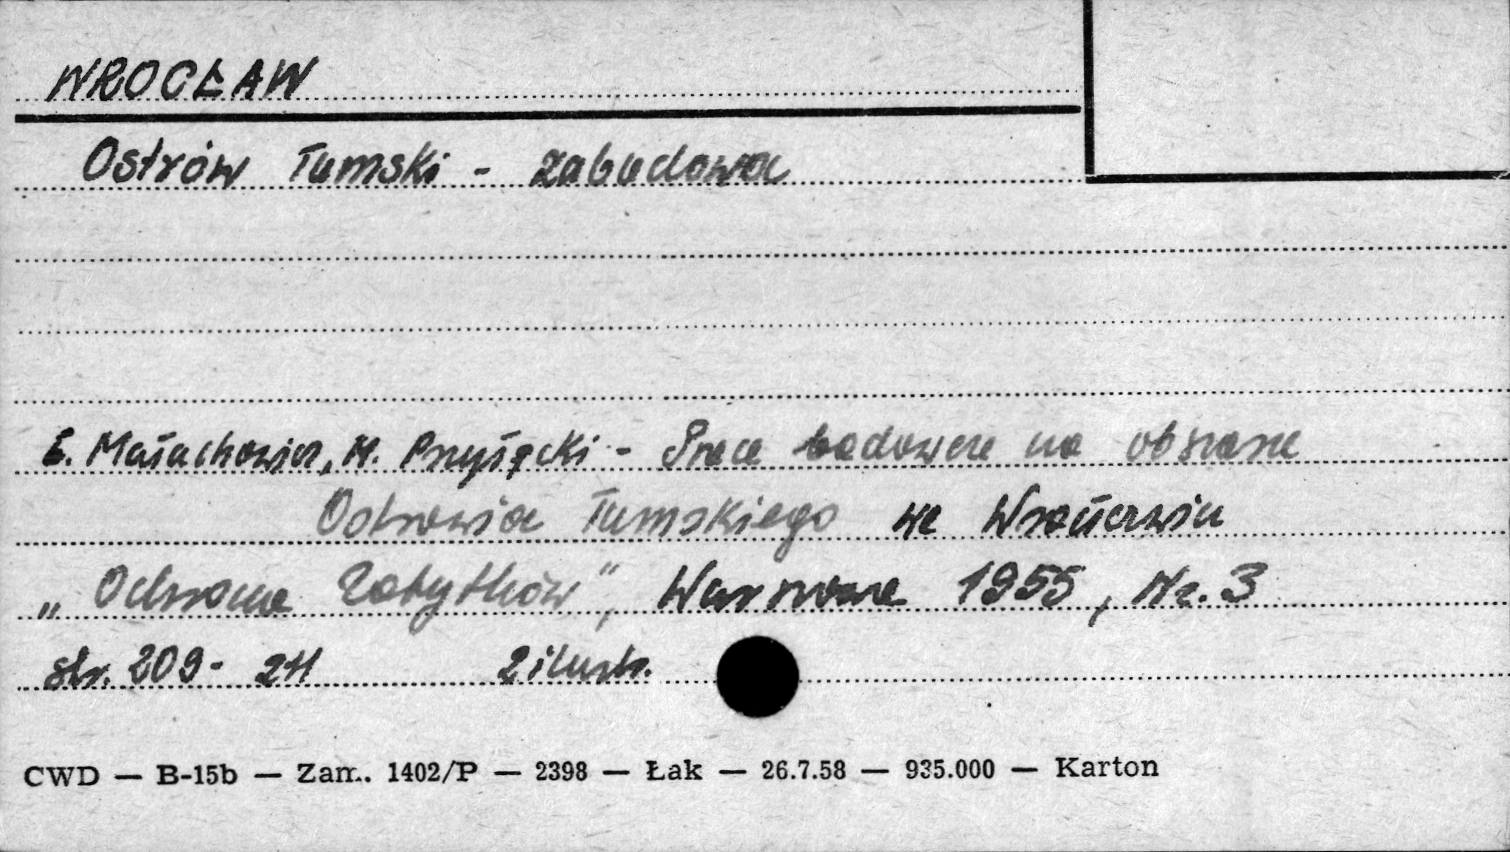 WROCŁAW
Ostrów Tumski - zabudowa
E. Małachowicz, M. Przyłęcki - Prace badawcze na obszarze
Ostrowia Tumskiego we Wrocławiu
„Ochrona Zabytków", Warszawa 1955, Nr. 3
str. 209-211 2 ilustr.
CWD — B-15b — Zam. 1402/P — 2398 — Łak — 26.7.58 — 935.000 — Karton